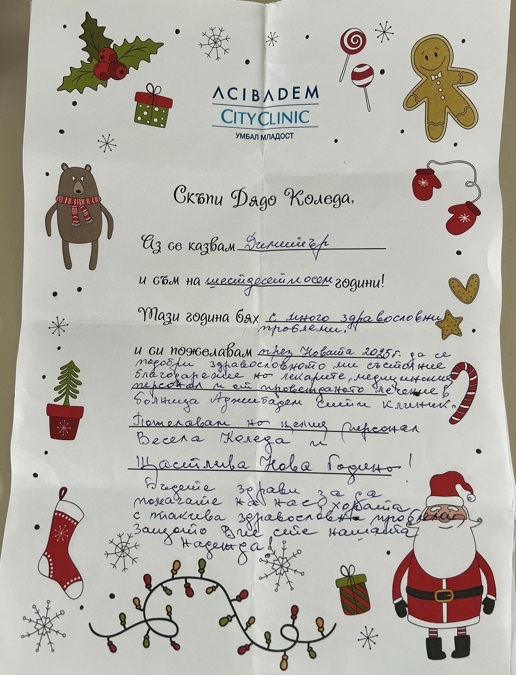 ACIBADEM
CITYCLINIC
УМБАЛ МЛАДОСТ
Скъпи Дядо Коледа,
Аз се казвам Димитър
и съм на шестдесет и осем години!
Тази година бях с много здравословни
проблеми.
и си пожелавам през Новата 2025г. да се
подобри здравословното ми състояние
благодарение на лекарите, медицинския
персонал и от провежданото лечение в
болница Аджибадем Сити Клиник.
Пожелавам на целия персонал
Весела Коледа и
Щастлива Нова Година!
Бъдете здрави за да
помагате на нас хората
с такива здравословни проблеми
Защото Вие сте нашата
надежда.